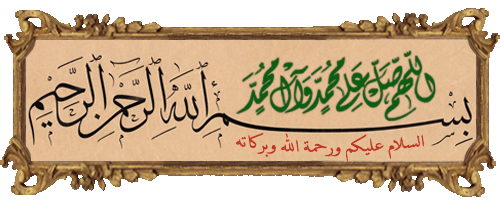 بسم الله الرحمن الرحيم
اللهم صل على محمد وآل محمد
السلام عليكم ورحمة الله وبركاته